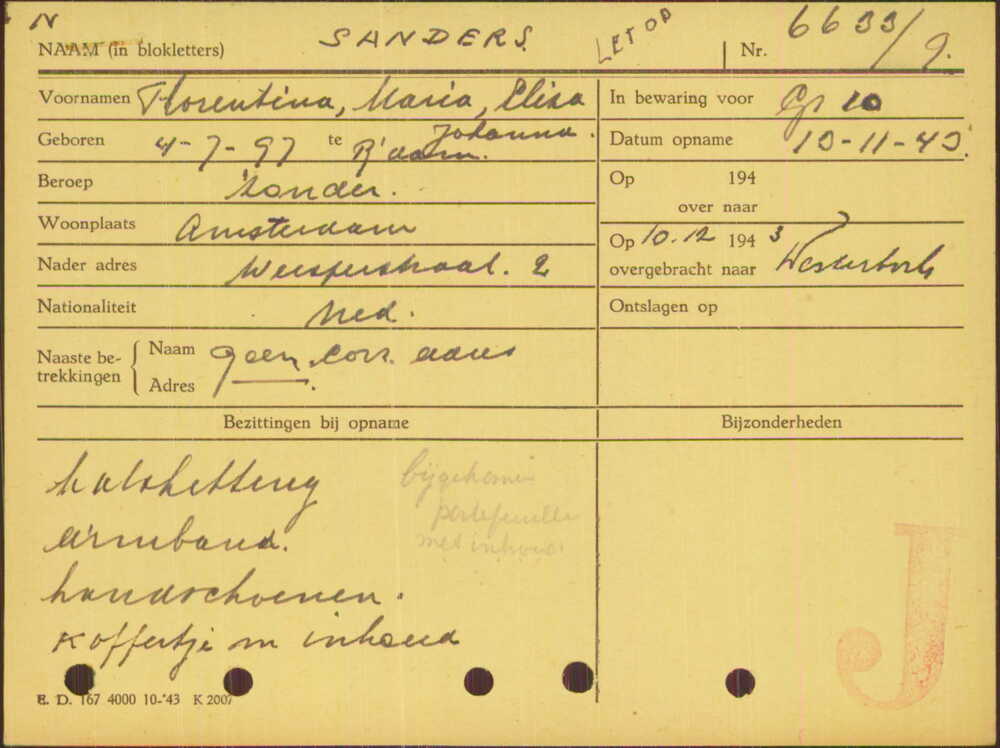 N
NAAM (in blokletters) SANDERS. LET OP Nr. 6633/9.
Voornamen Florentina, Maria, Eliza
Johanna.
Geboren 4-7-97 te R'dam.
Beroep zonder.
Woonplaats Amsterdam
Nader adres Weesperstraat. 2
Nationaliteit Ned.
Naaste be-
trekkingen
Naam geen corr. adres
Adres
In bewaring voor Gr 10
Datum opname 13-11-43.
Op 194
over naar
Op 10.12 1943
overgebracht naar Westerbork
Ontslagen op
Bezittingen bij opname
halsketting
armband.
handschoenen.
koffertje m inhoud
bijgekomen
portefeuille
met inhoud
Bijzonderheden
J
E. D. 167 4000 10-'43 K 2007